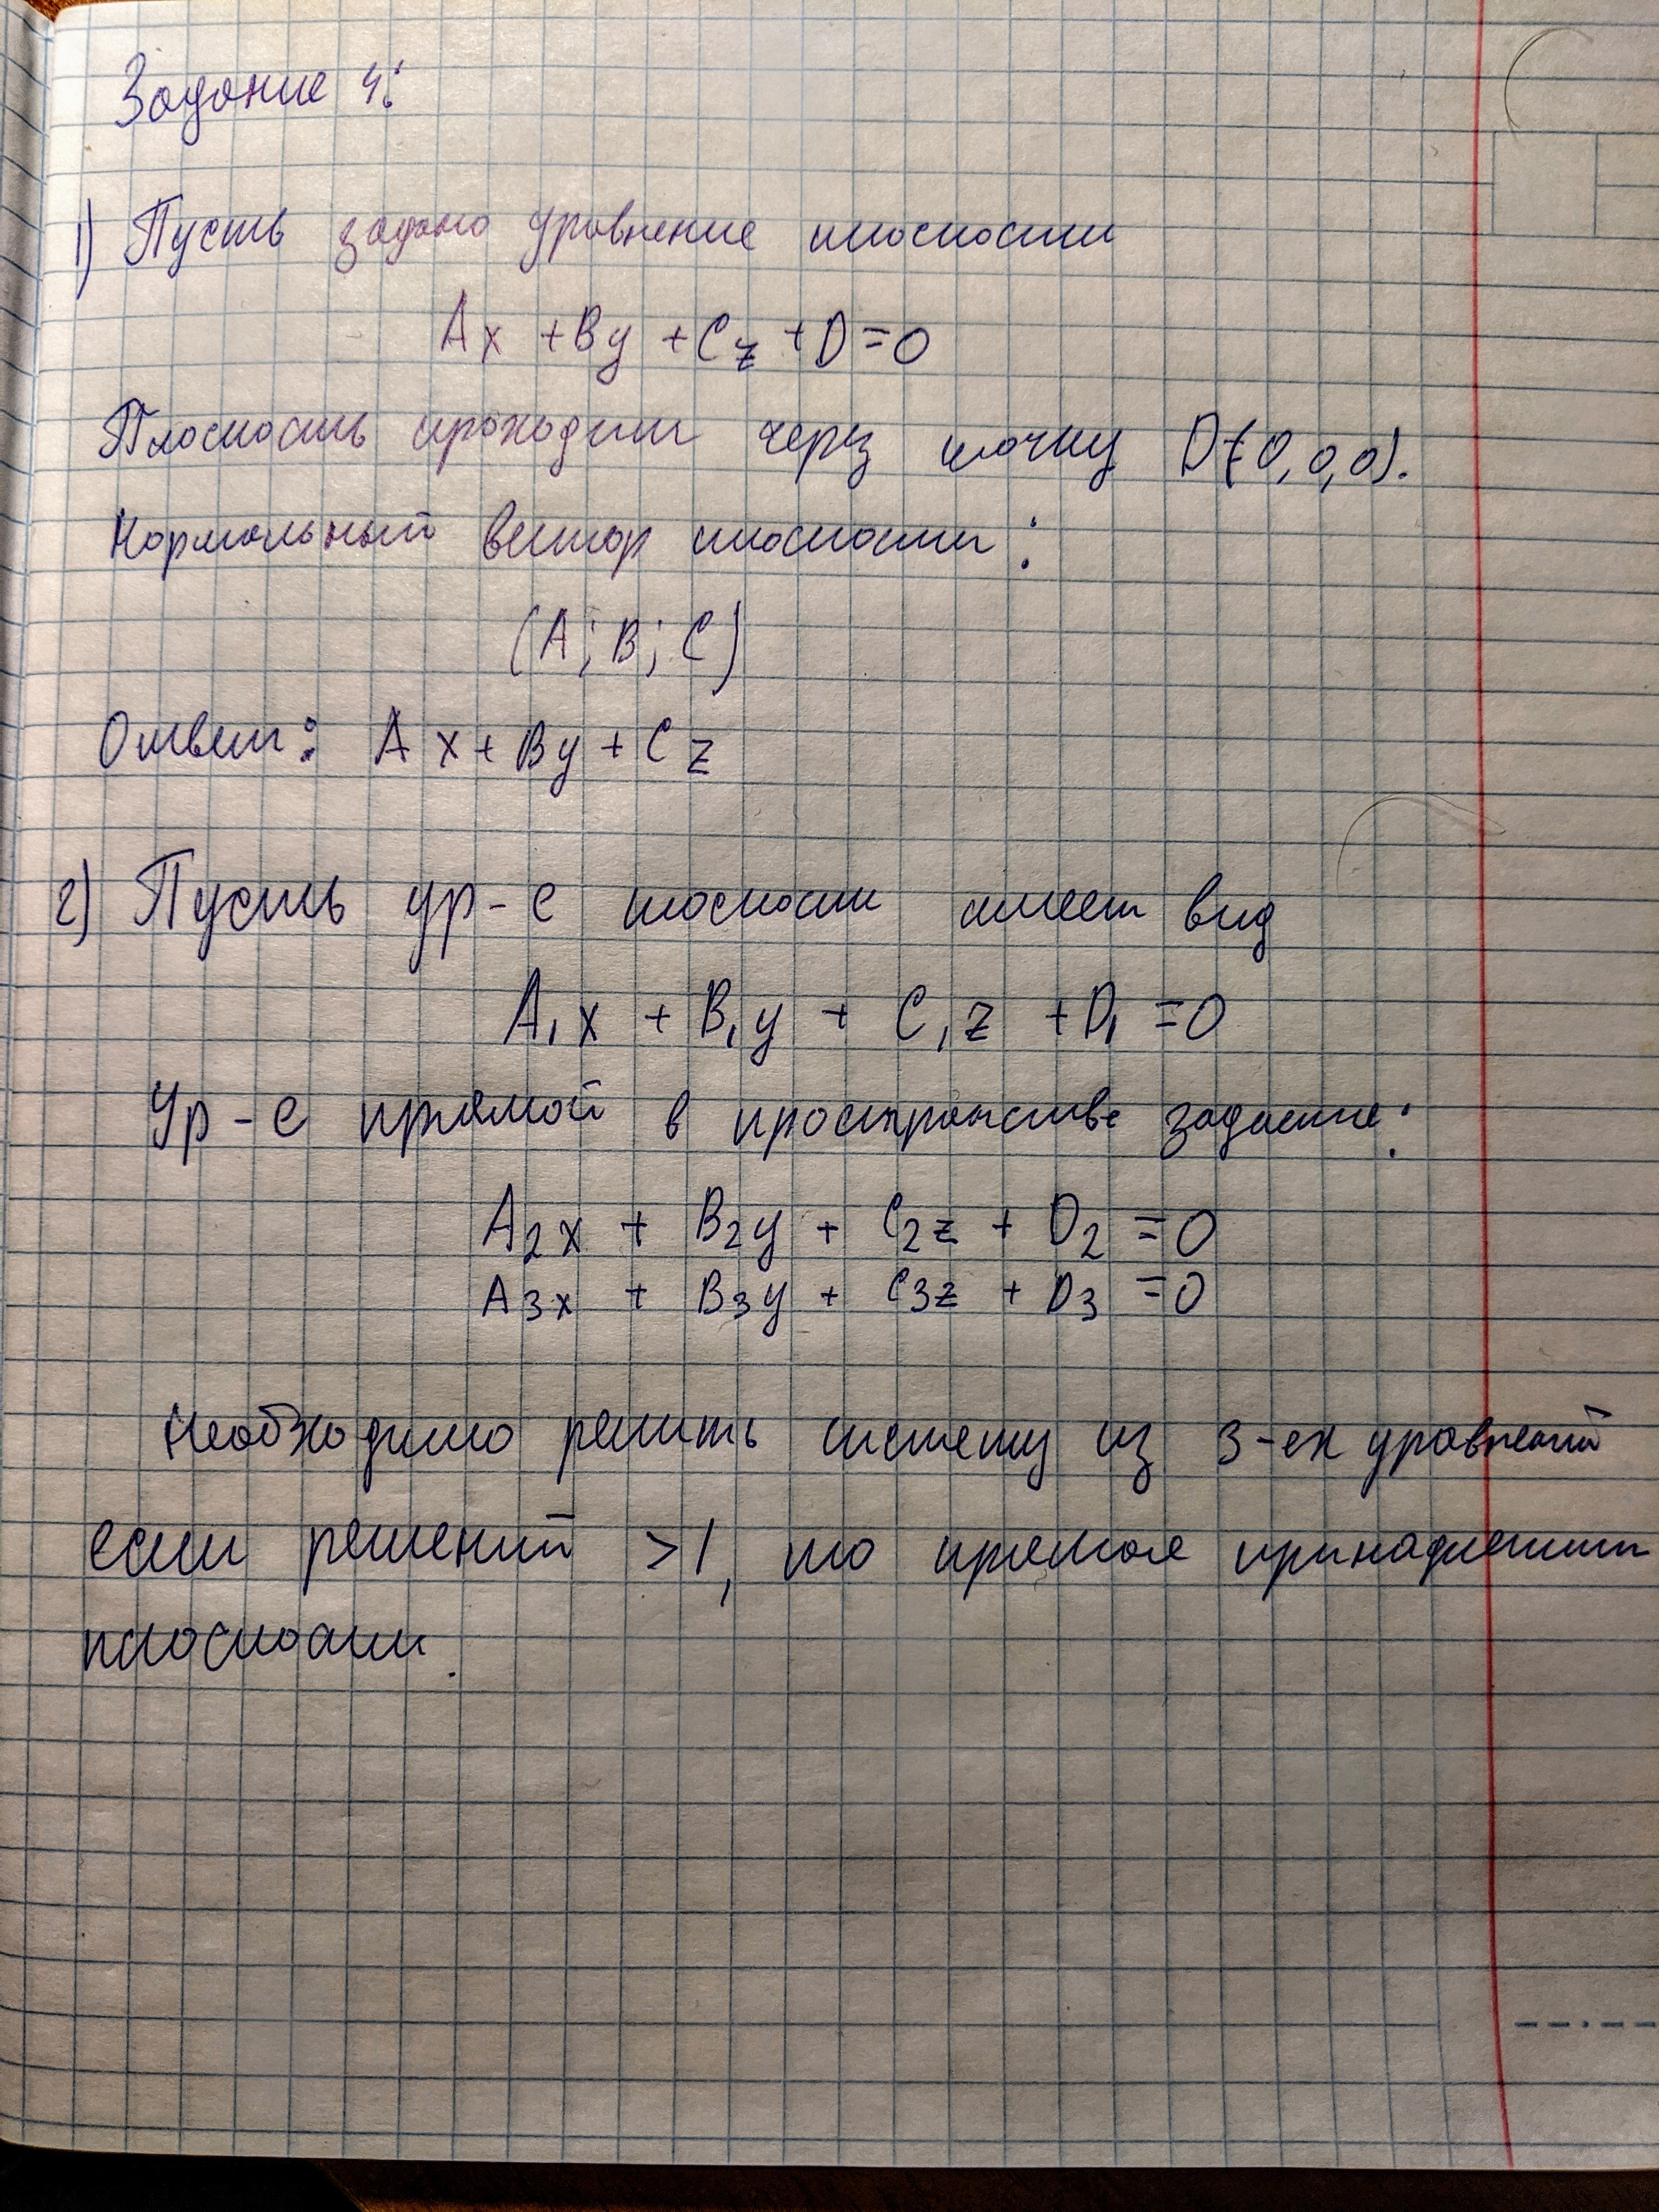 Задание 4:
1) Пусть задано уравнение плоскости
Ax + By + Cz + D = 0
Плоскость проходит через точку D(0,0,0).
Нормальный вектор плоскости:
(A; B; C)
Ответ: Ax + By + Cz
2) Пусть ур-е плоскости имеет вид
A₁x + B₁y + C₁z + D₁ = 0
Ур-е прямой в пространстве задание:
A₂x + B₂y + C₂z + D₂ = 0
A₃x + B₃y + C₃z + D₃ = 0
Необходимо решить систему из 3-ех уравнений
если решений >1, то прямая принадлежит
плоскости.